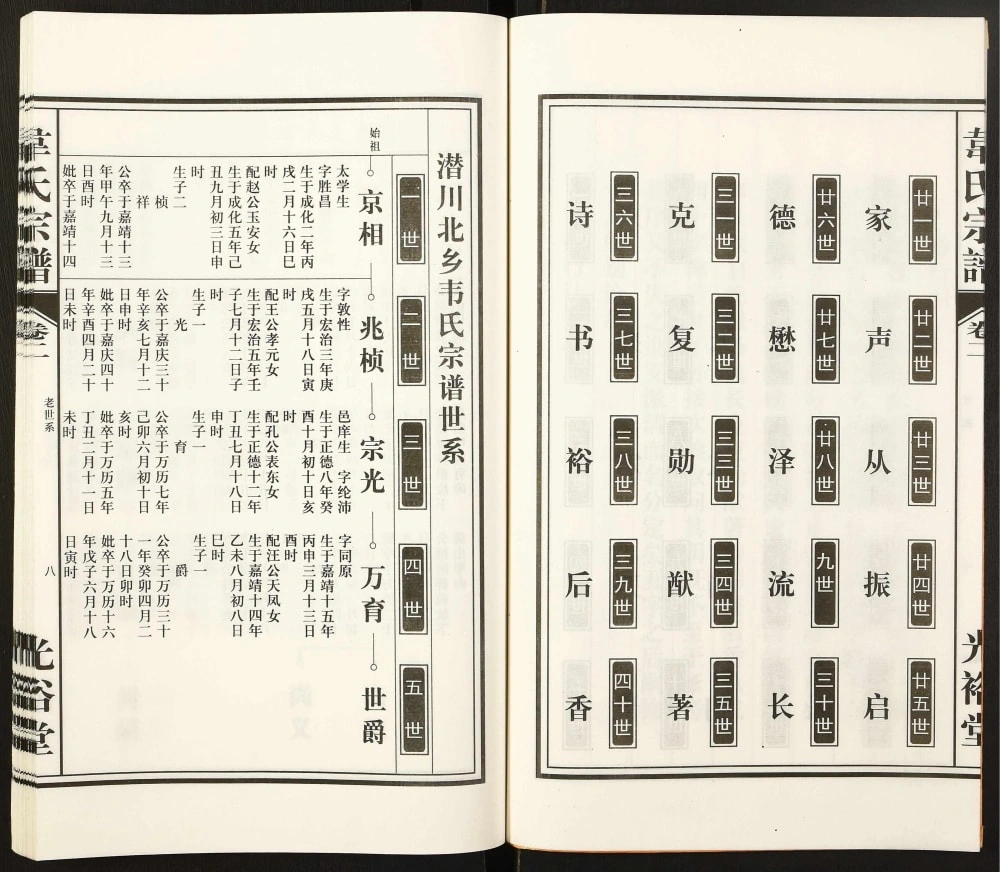 韋氏宗譜 卷二 光裕堂
廿一世 廿二世 廿三世 廿四世 廿五世
家 声 从 振 启
廿六世 廿七世 廿八世 九世 三十世
德 懋 泽 流 长
三一世 三二世 三三世 三四世 三五世
克 复 勋 猷 著
三六世 三七世 三八世 三九世 四十世
诗 书 裕 后 香
潜川北乡韦氏宗谱世系
一世 二世 三世 四世 五世
始祖 京相 兆桢 宗光 万育 世爵
太学生
字胜昌
生于成化二年丙
戌二月十六日巳
时
配赵公玉安女
生于成化五年己
丑九月初三日申
时
生子二
桢
祥
公卒于嘉靖十三
年甲午九月十三
日酉时
妣卒于嘉靖十四
字敦性
生于宏治三年庚
戌五月十八日寅
时
配王公孝元女
生于宏治五年壬
子七月十二日子
时
生子一
光
公卒于嘉庆三十
年辛亥七月十二
日申时
妣卒于嘉庆四十
年辛酉四月二十
日未时
邑庠生 字纶沛
生于正德八年癸
酉十月初十日亥
时
配孔公表东女
生于正德十二年
丁丑七月十八日
申时
生子一
育
公卒于万历七年
己卯六月初十日
亥时
妣卒于万历五年
丁丑二月十一日
未时
字同原
生于嘉靖十五年
丙申三月十三日
酉时
配汪公天凤女
生于嘉靖十四年
乙未八月初八日
巳时
生子一
爵
公卒于万历三十
一年癸卯四月二
十八日卯时
妣卒于万历十六
年戊子六月十八
日寅时
韋氏宗譜 卷二 老世系 八 光裕堂